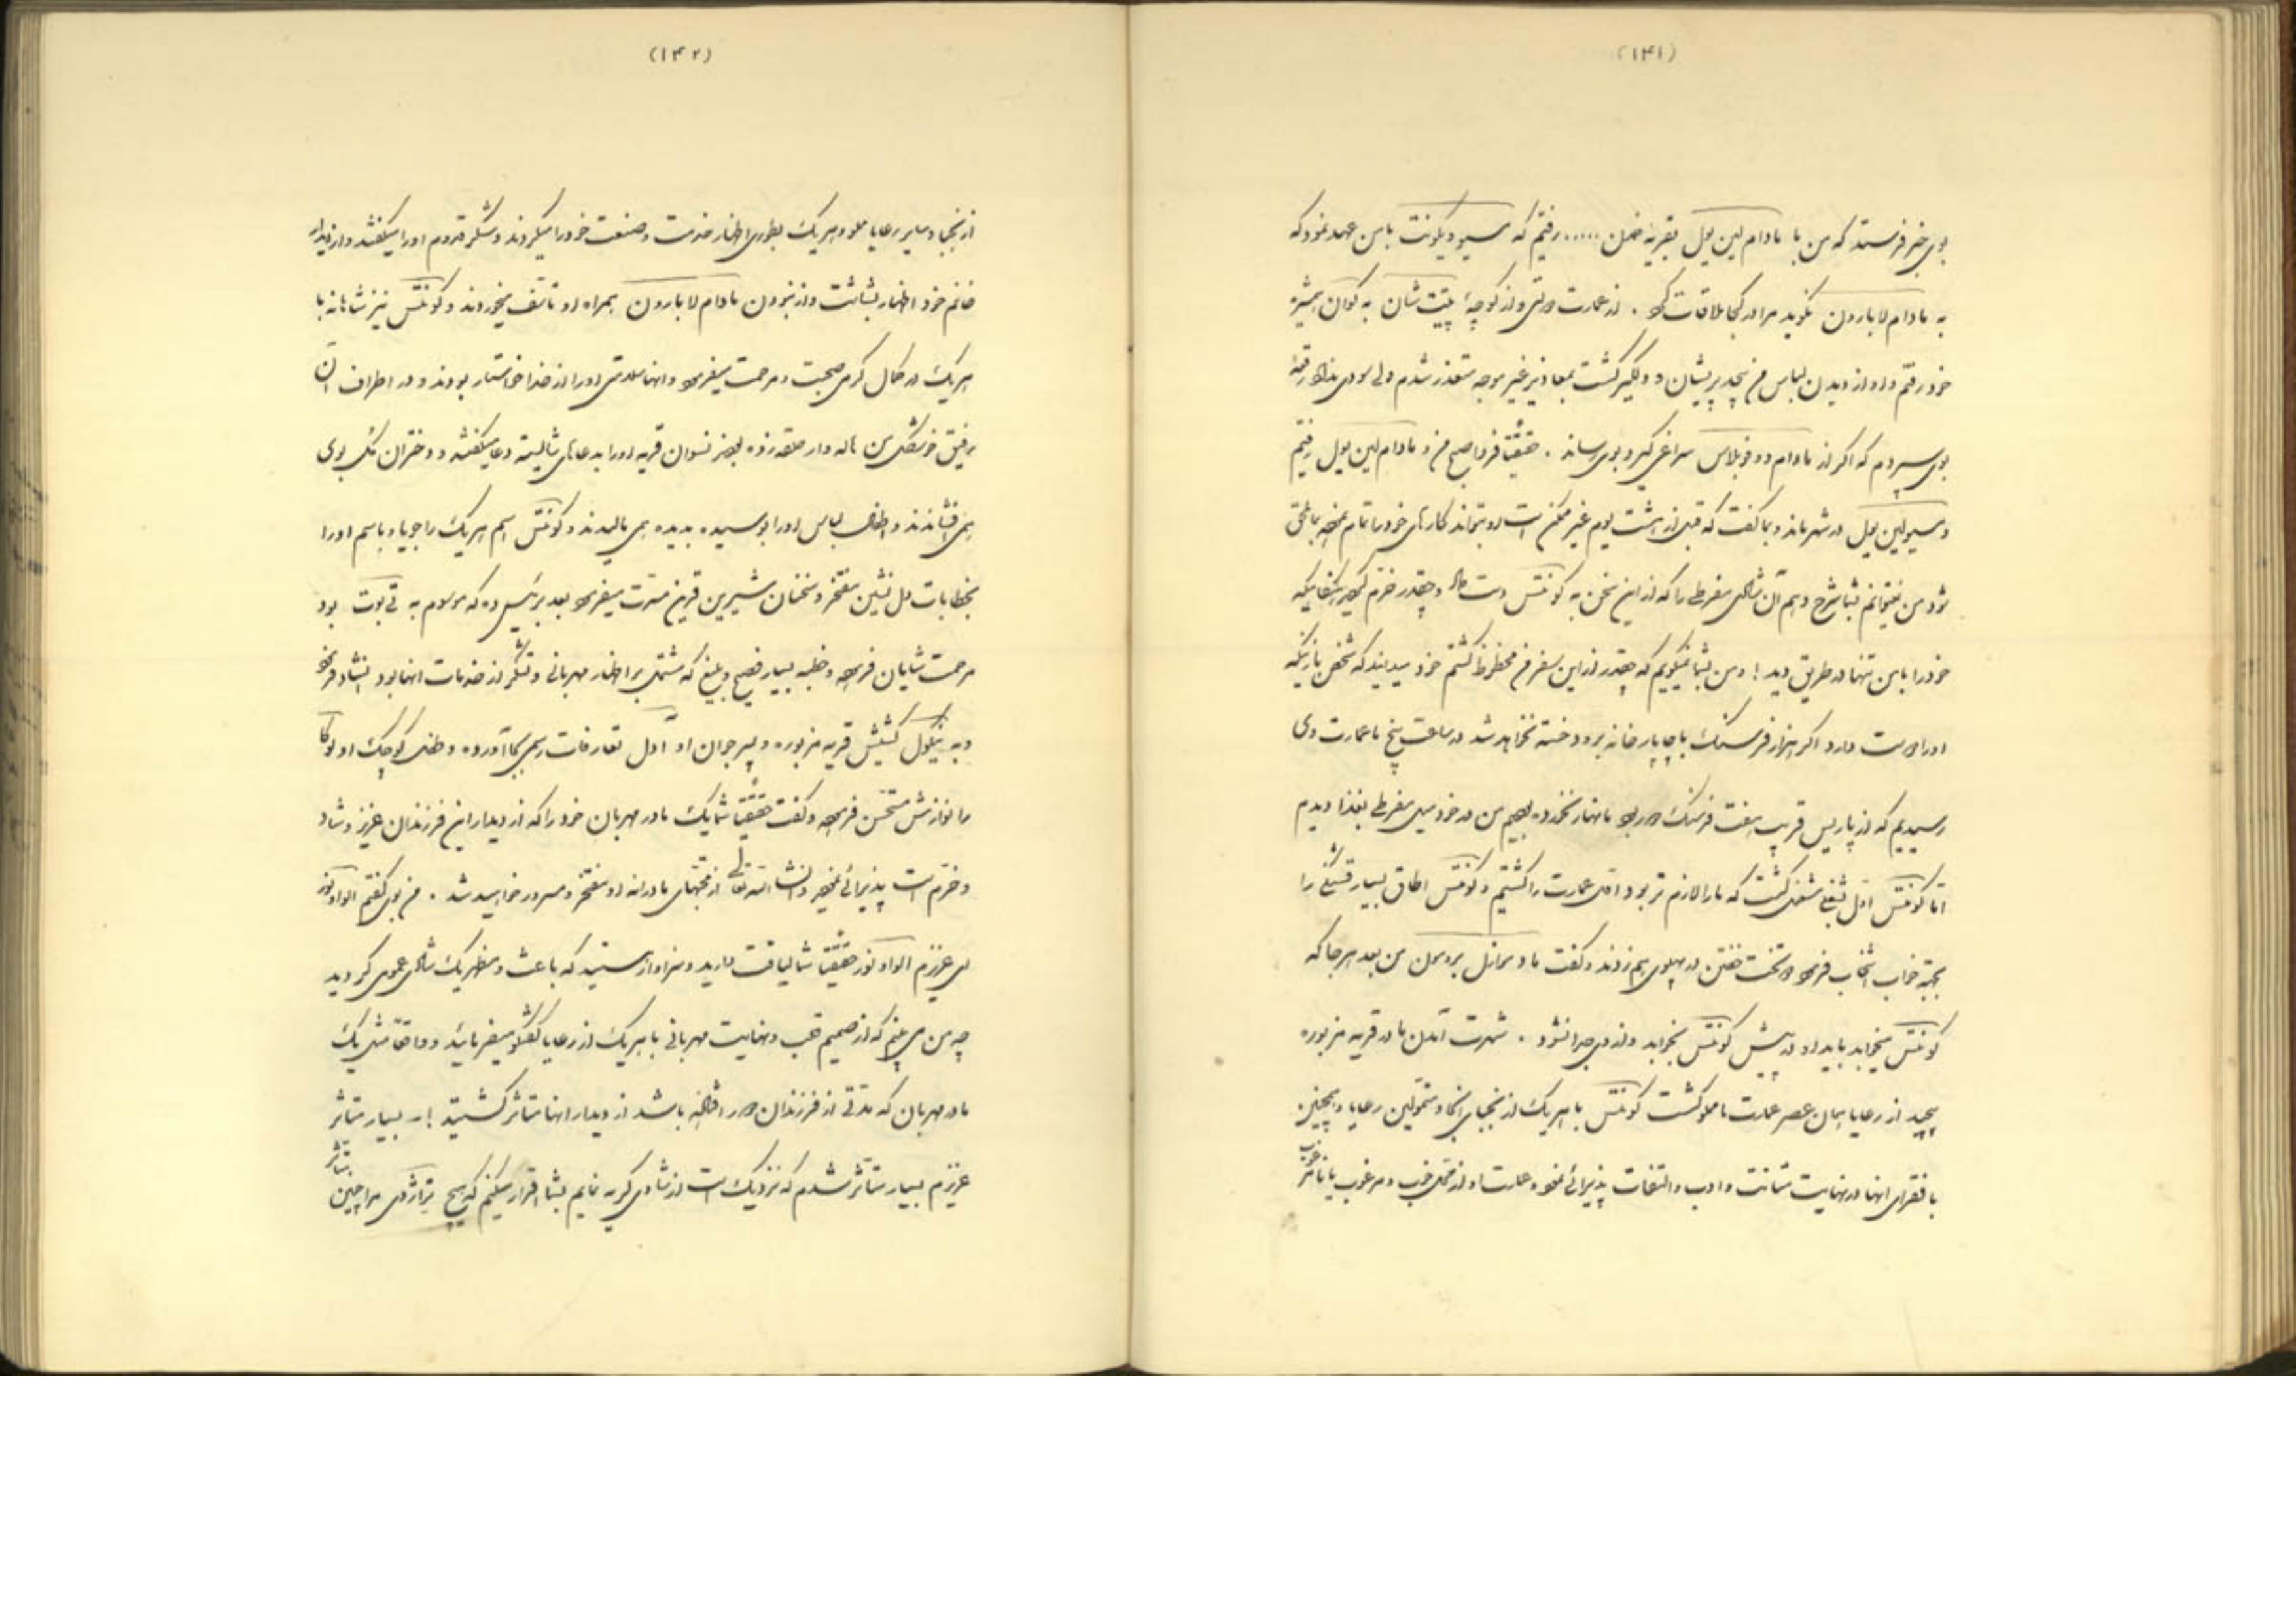 (۱۴۱)
بوی خبر فرستد که من با مادام لین پول بقریهٔ ..... رفتیم که مسیو دیکونت با من عهد نمود که
به مادام لابارون نگوید مرا در کجا ملاقات کرد . از عمارت وی و از کوچهٔ پتیت شان به کوان همیشه
خود رفتم و او از دیدن لباس من بیحد پریشان و دلگیر گشت بمعاذیر غیر موجه متعذر شدم ولی سودی نداد رقعهٔ
بوی سپردم که اگر از مادام دو فوبلاس سراغی گیرد بوی رساند . حقیقتاً فردا صبح من و مادام لین پول رفتیم
و مسیو لین پول در شهر ماند و بما گفت که قبل از هشت یوم غیر ممکن است او بتواند کارهای خود را تمام نموده بما ملحق
شود من نمیتوانم بشما شرح دهم آن شادی مفرطی را که از این سخن به کونتس دست داد و چقدر خرم گردید هنگامیکه
خود را با من تنها در طریق دید ! و من بشما نمیگویم که چقدر از این سفر من محظوظ گشتم خود میدانید که شخص نازنینکه
او را دوست دارد اگر هزار فرسنگ با چاپارخانه برود خسته نخواهد شد در ساعت پنج ما بعمارت وی
رسیدیم که از پاریس قریب هفت فرسنگ دور بود ما نهار نخورده بودیم من در خود میل مفرطی بغذا دیدم
اما کونتس اول بشغلی مشغول گشت که ما را لازم تر بود اقلی عمارت را گشتیم و کونتس اطاق بسیار قشنگی را
بجهة خواب انتخاب فرمود دو تخت خفتن در پهلوی هم زدند و گفت مادموازل برومون من بعد هر جا که
کونتس میخوابد باید او در پیش کونتس بخوابد و از وی جدا نشود . شهرت آمدن ما در قریه مزبوره
پیچید از رعایا همان عصر عمارت ما مملو گشت کونتس با هر یک از نجبای آنجا و متمولین رعایا و همچنین
با فقرای آنها در نهایت متانت و ادب و التفات پذیرائی نمود و عادت او از محل خوب و مرغوب یا نا مرغوب
(۱۴۲)
از نجبا و سایر رعایا مملو و هر یک بطوری اظهار خدمت و صنعت خود را میکردند و شکر قدوم او را میگفتند و از دیدار
خانم خود اظهار بشاشت و از نبودن مادام لابارون بهمراه او تأسف میخوردند و کونتس نیز شاهانه با
هر یک در کمال گرمی صحبت و مرحمت میفرمود و آنها سلامتی او را از خدا خواستار بودند و در اطراف آن
رفیق خوشگل من هاله وار حلقه زده بعضی نسوان قریه او را بدعاهای شایسته دعا میگفتند و دختران گل بوی
همی افشاندند و اطفال لباس او را بوسیده بدیده همی مالیدند و کونتس اسم هر یک را جویا و باسم او را
بخطابات دل نشین مفتخر و سخنان شیرین قرین مسرت میفرمود بعد برئیس ده که موسوم به تی بوت بود
مرحمت شایان فرموده و خطبه بسیار فصیح و بلیغ که مشتمل بر اظهار مهربانی و تشکر از خدمات آنها بود انشاد فرمود
و به نیکول کشیش قریه مزبوره و پسر جوان او آدل تعارفات رسمی بجا آورده و طفل کوچک او لوکا
را نوازش مستحسن فرموده و گفت حقیقتاً شما یک مادر مهربان خود را که از دیدار این فرزندان عزیز و شاد
و خرم است پذیرائی نموده و انشاء الله تعالی از محبتهای مادرانه او مفتخر و مسرور خواهید شد . من بوی گفتم الواونوز
ای عزیزم الواونوز حقیقتاً شما لیاقت دارید و سزاوار هستید که باعث و مظهر یک شادی عمومی گردید
چه من می بینم که از صمیم قلب و نهایت مهربانی با هر یک از رعایا گفتگو میفرمائید و واقعاً مثل یک
مادر مهربان که مدتی از فرزندان دور افتاده باشد از دیدار آنها متأثر گشتید ! – بسیار متأثر
عزیزم بسیار متأثر شدم که نزدیک است از شادی گریه نمایم بشما اقرار میکنم که هیچ تراژدی مرا چنین متأثر